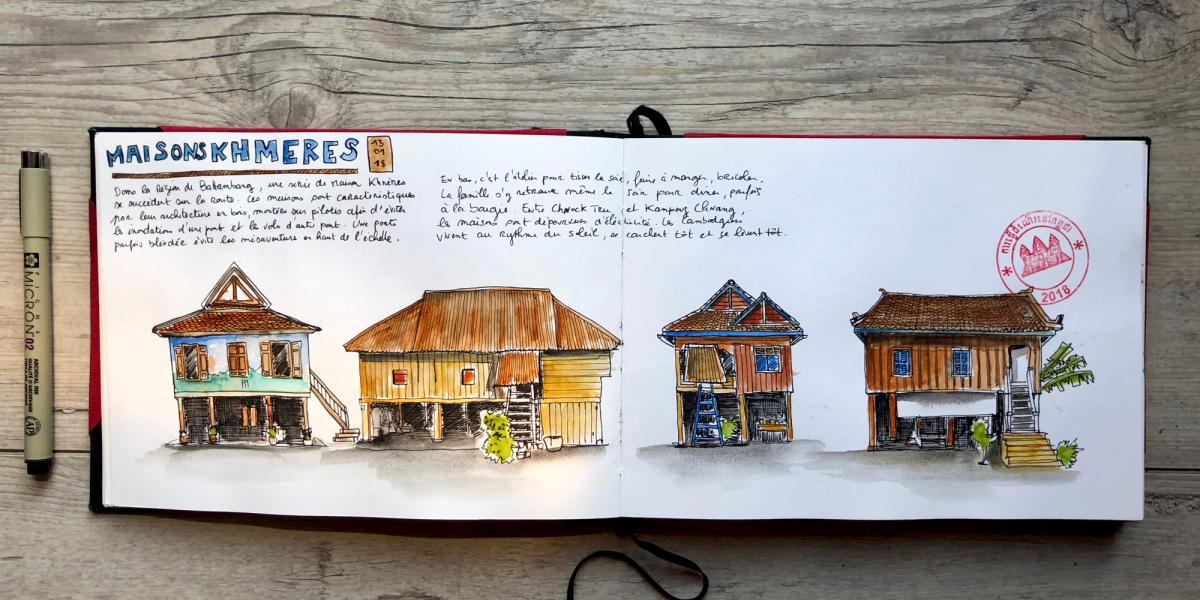 MAISONS KHMERES
13
01
18
Dans la Région de Batambang, une série de Maison Khmères
se succèdent sur la route. Ces maisons sont caractéristiques
par leur architecture en bois, montées sur pilotis afin d'éviter
la inondation d'une part et le vols d'autre part. Une porte
parfois blindée évite les mésaventure en haut de l'échelle.
En bas, c'est l'atelier pour tisser la soie, faire à manger, bricoler.
La famille s'y retrouve même le soir pour diner, parfois
à la bougie. Entre Chnock Tru et Kampong Chnang,
les maisons sont dépourvues d'électricité. Les Cambodgiens
vivent au rythme du soleil, se couchent tôt et se lèvent tôt.
2018
MICRON 02
ARCHIVAL INK